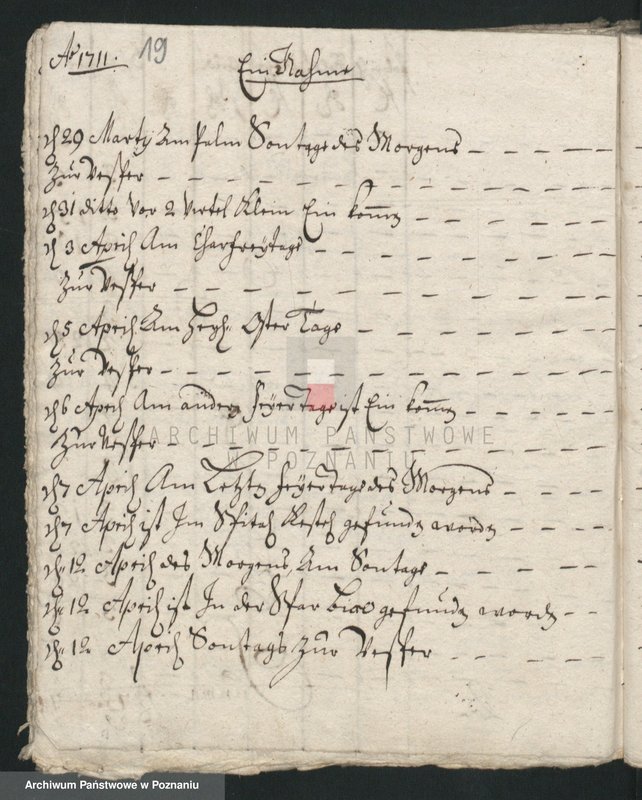 Ao 1711. 19
Ein Nahme
d 29 Marty Am Palm Sontags des Morgens
Zur Vesper
d 31 ditto vor 2 virtel Klein Ein komen
d 3 April Am Charfreytags
Zur Vesper
d 5 April Am Heyl: Oster Tage
Zur Vesper
d 6 April Am andern feyer Tage ist Ein komen
Zur Vesper
ARCHIWUM PAŃSTWOWE
W POZNANIU
d 7 April Am Letzten feyer tags des Morgens
d 7 April ist Im gefunden worden
d. 12 April des Morgens, Am Sontags
d. 12 April ist In der gefunden worden
d. 12 April Sontags Zur Vesper
Archiwum Państwowe w Poznaniu